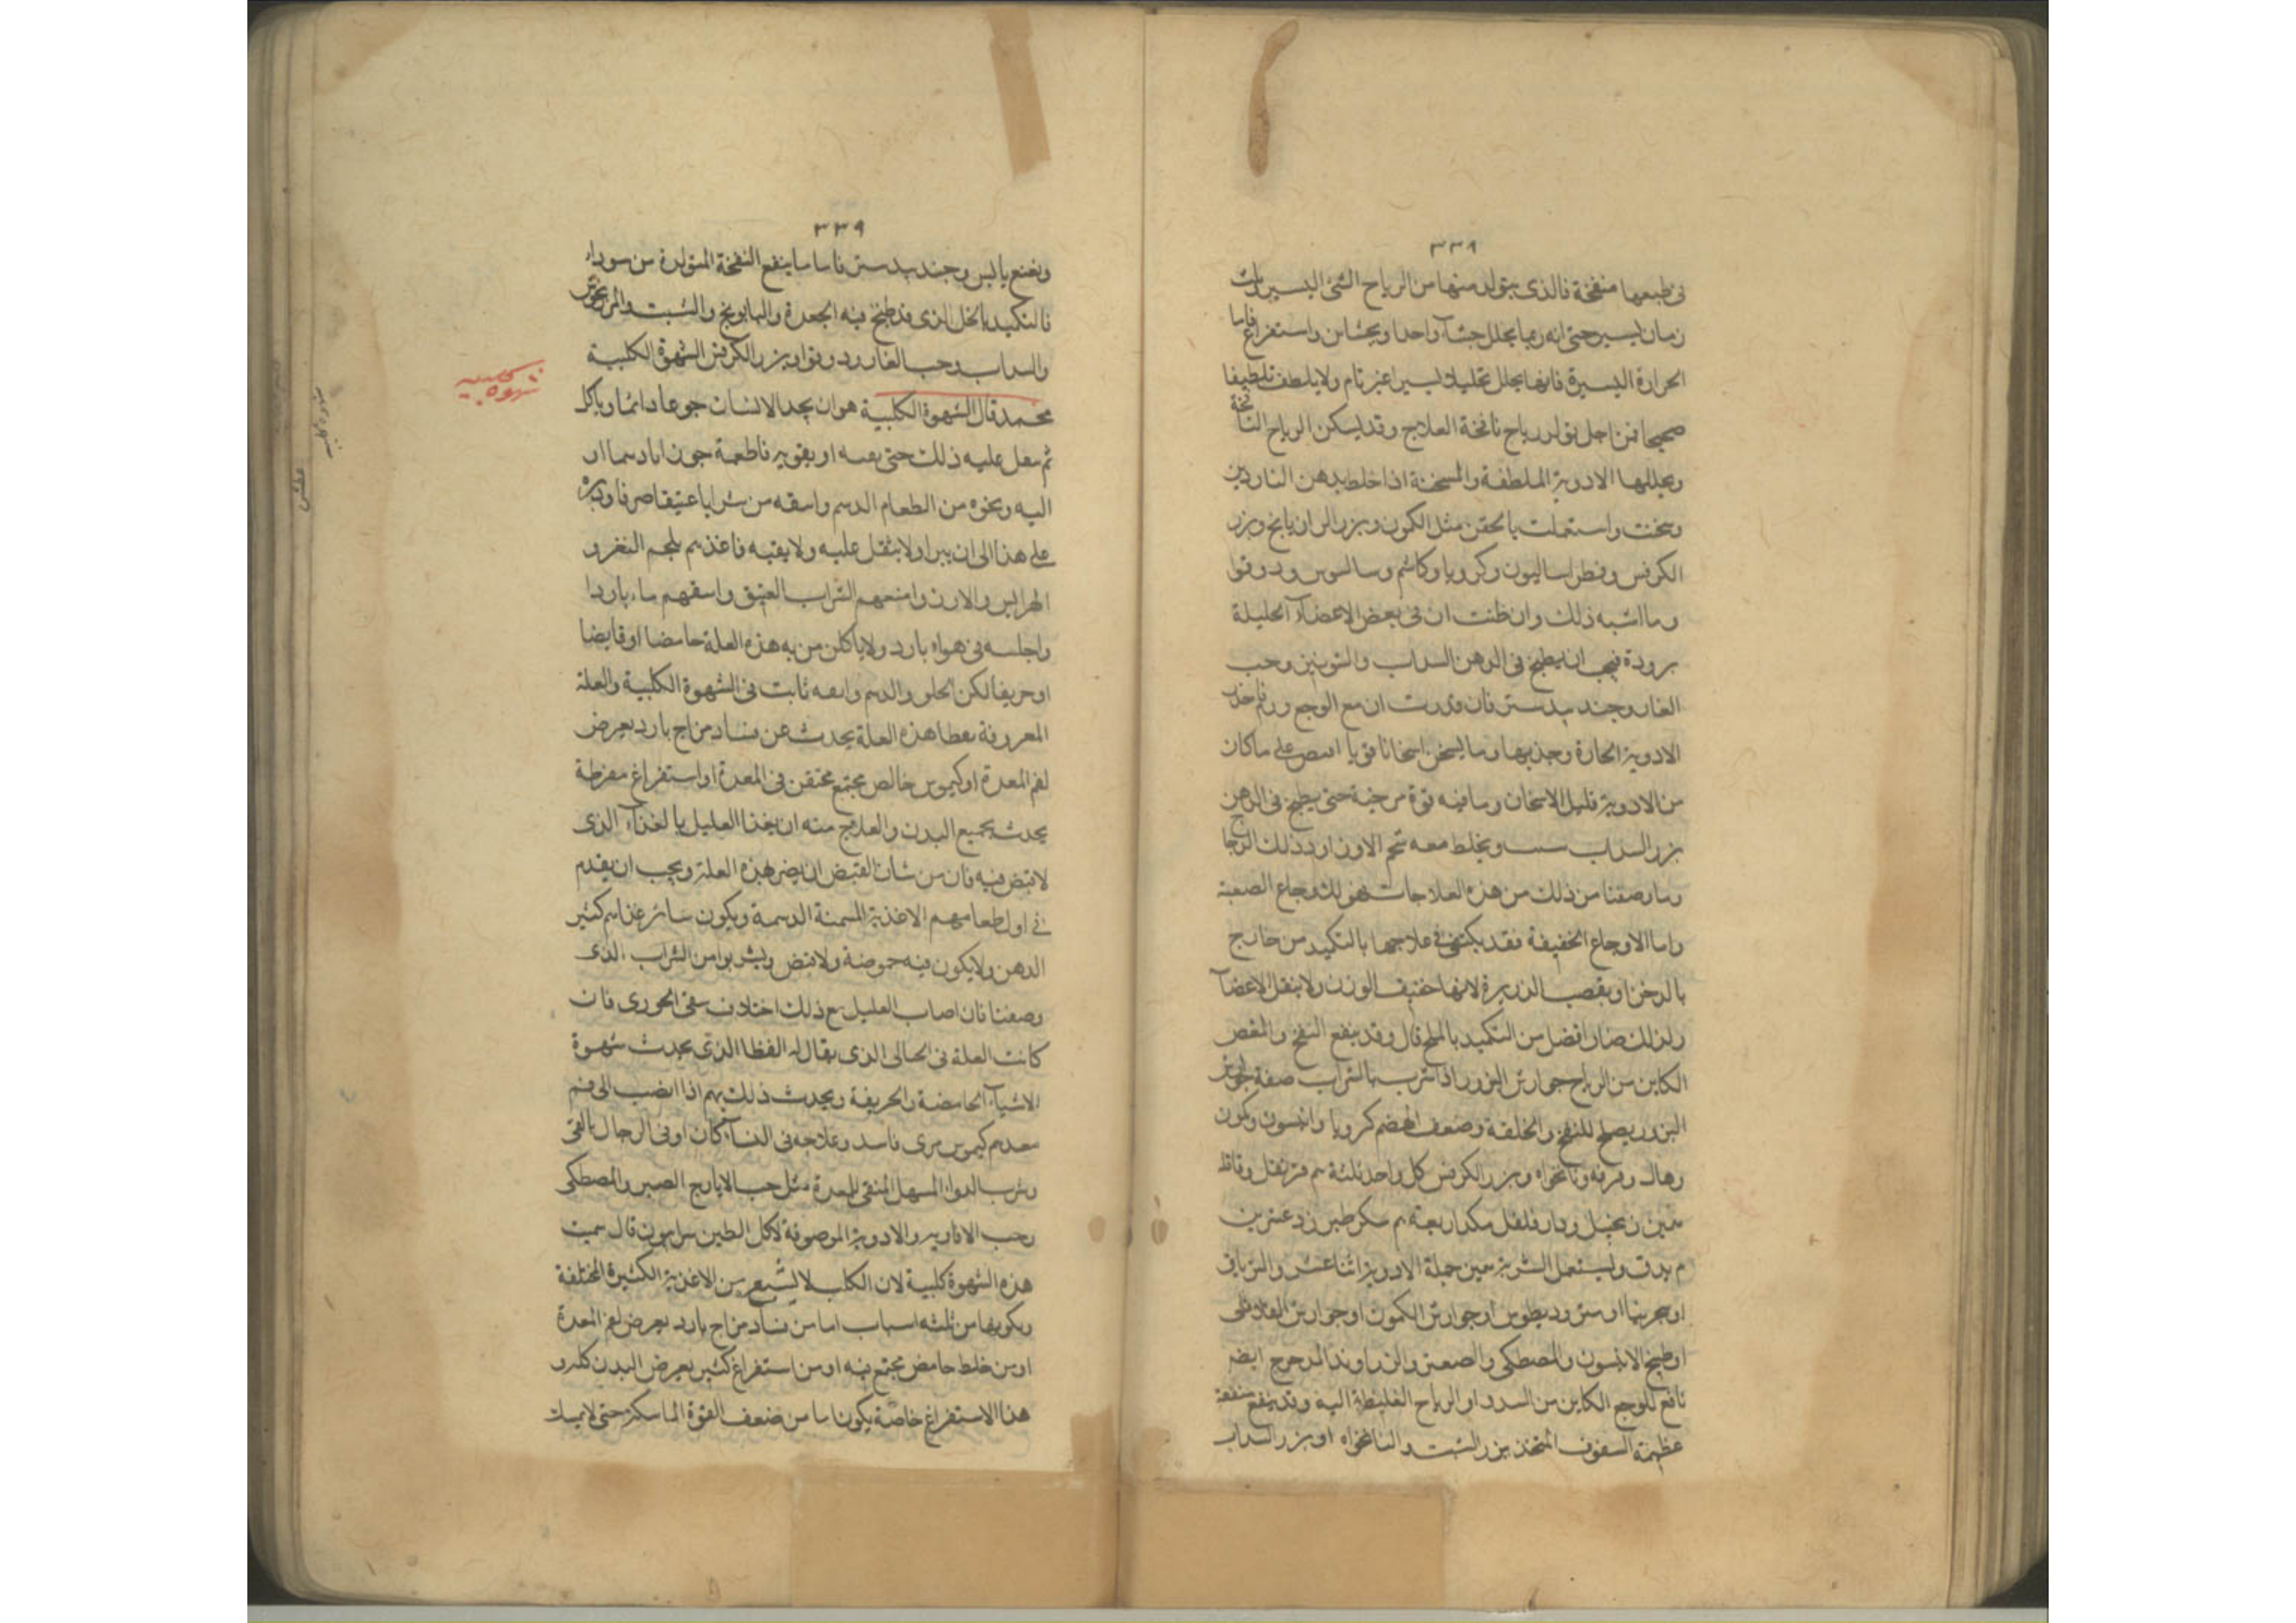 ٣٣٨
في طبعها منفخة فالذى يتولد منها من الرياح الشئ اليسير
زمان يسير حتى انه ربما يحلل جشآ واحدا ويجشاين واستفراغ فاما
الحرارة اليسيرة فانها يحلل تحليلا يسيرا غير تام ولا يلطف تلطيفا
صحيحا فمن اجل تولد رياح نافخة العلاج وقد يسكن الرياح النافخة
ويحللها الادوية الملطفة والمسخنة اذا خلط بدهن الناردين
وسخنت واستعملت بالحقن مثل الكمون وبزر الرازيانج وبزر
الكرفس وفطراساليون وكرويا وكاشم وسالسوس ودوقوا
وما اشبه ذلك وان ظننت ان في بعض الاعضاء الجليلة
برودة فيجب ان يطبخ في الدهن السداب والشونيز وحب
الغار وجندبيدستر فان قدرت ان مع الوجع ورم فاحذر
الادوية الحارة وجذبها وما يسخن اسخانا قويا اقتصر على ما كان
من الادوية قليل الاسخان وما فيه قوة مرخية حتى يطبخ في الدهن
بزر السداب ويخلط معه شحم الاوز او
وما وصفنا من ذلك من هذه العلاجات فهو للاوجاع الصعبة
واما الاوجاع الخفيفة فقد يكتفى في علاجها بالتكميد من خارج
بالدخن او بقصب الذريرة لانها خفيف الوزن ولا يثقل الاعضآ
ولذلك صار افضل من التكميد بالملح قال وقد ينفع النفخ والمغص
الكاين من الرياح جوارش البزور اذا شرب بالشراب صفة جوارش
البزور يصلح للنفخ والخلفة وضعف الهضم كرويا وانيسون وكمون
وهال وقرفه ونانخواه وبزر الكرفس كل واحد ثلثة م قرنفل وقاقلة
زنجبيل ودارفلفل مكد اربعة م سكر طبرزد عشرين
م يدق ويستعمل الشربة من جملة الادوية اثنا عشر والترياق
او جوارش الكمون او جوارش الفلافلى
او طبيخ الانيسون والمصطكى والصعتر والزراوند المدحرج ايضا
نافع للوجع الكاين من السدد او الرياح الغليظة اليه وقد ينفع منفعة
عظيمة السفوف المتخذ بزر الشبت والنانخواه او بزر السداب
٣٣٩
ونعنع يابس وجندبيدستر فاما ما ينفع النفخة المتولدة من سوداء
فالتكميد بالخل الذى قد طبخ فيه الجعدة والبابونج والشبت والمرزنجوش
والسداب وحب الغار ودوقوا وبزر الكرفس الشهوة الكلبية
محمد قال الشهوة الكلبية هو ان يجد الانسان جوعا دائما وياكل
ثم يثقل عليه ذلك حتى
اليه ونحوه من الطعام الدسم واسقه من شرابا عتيقا صرفا ودبره
على هذا الى ان يبرا ولا يثقل عليه ولا يقيه فاغذهم بلحم البقر و
الهرايس والارز وامنعهم الشراب العتيق واسقهم ماء باردا
واجلسه في هواء بارد ولا ياكلن من به هذه العلة حامضا او قابضا
او حريفا لكن الحلو والدسم ثابت في الشهوة الكلبية والعلة
المعروفة هذه العلة يحدث عن فساد مزاج بارد يعرض
لفم المعدة او كيموس خالص مجتمع محتقن في المعدة او استفراغ مفرطة
يحدث بجميع البدن والعلاج منه ان يغذا العليل بالغذاء الذى
لا قبض فيه فان من شان القبض ان يضر هذه العلة ويجب ان يقدم
في اول طعامهم الاغذية المسمنة الدسمة ويكون سائر غذاهم كثير
الدهن ولا يكون فيه حموضة ولا قبض ويشربوا من الشراب الذى
وصفنا فان اصاب العليل مع ذلك اختلاف سقى الخوزى فان
كانت العلة في الحبالى الذى يقال له القطا الذى يحدث شهوة
الاشيآء الحامضة والحريفة ويحدث ذلك بهم اذا انصب الى فم
معدهم كيموس مرى فاسد وعلاجه في النسآء كان او في الرجال بالقى
وشرب الدواء المسهل المنقى للمعدة مثل حب الايارج الصبر والمصطكى
وحب الافاويه والادوية الموصوفة لاكل الطين سرابيون قال سميت
هذه الشهوة كلبية لان الكلب لا يشبع من الاغذية الكثيرة المختلفة
وتكونها من ثلثه اسباب اما من فساد مزاج بارد يعرض لفم المعدة
او من خلط حامض مجتمع فيه او من استفراغ كثير يعرض البدن كله و
هذا الاستفراغ خاصة يكون اما من ضعف القوة الماسكة حتى لا يمسك
شهوة كلبيه
شهوة كلبيه
عطش